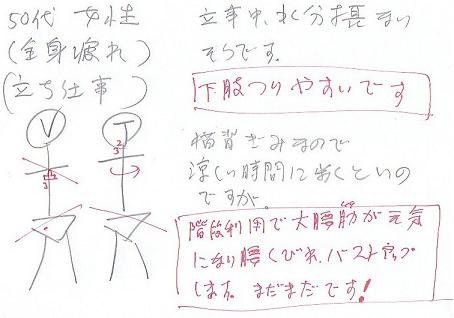 50代 女性
(全身疲れ)
(立ち仕事)
V
3
T
3
2
仕事中、水分摂まい
そうです。
下肢つりやすいです
猫背ぎみなので
涼しい時間に歩くといいの
ですが、
階段利用で大腰筋が元気
になり腰くびれ、バストアップ
します。まだまだです!